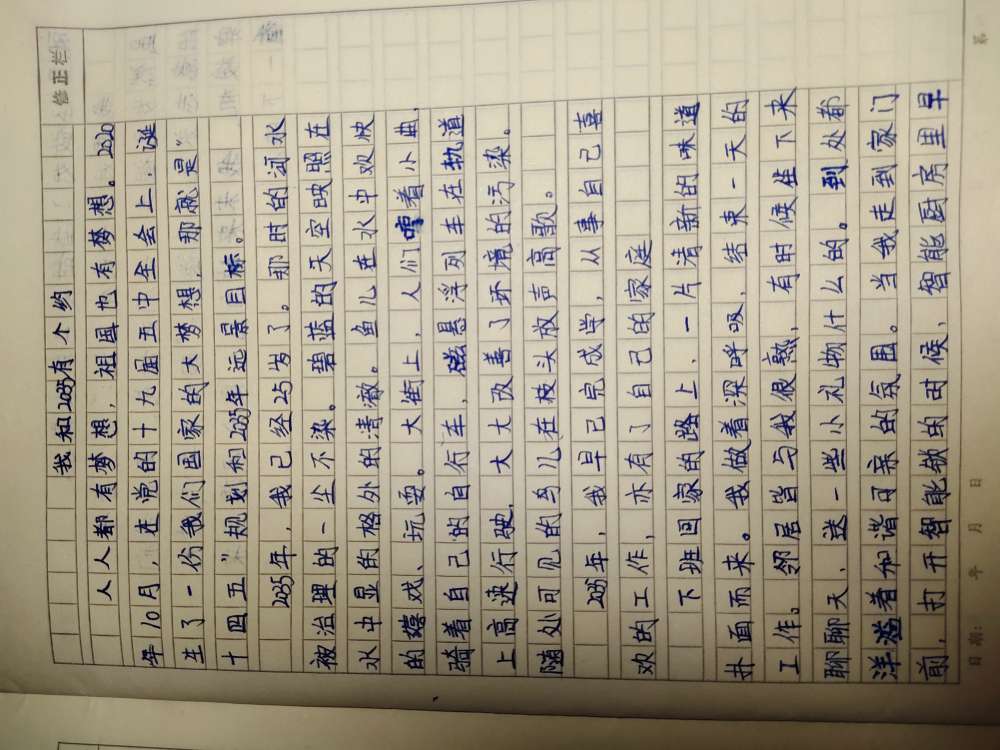 修正栏
我和2035有个约
人人都有梦想，祖国也有梦想。2020
年10月，在党的十九届五中全会上，诞
生了一份我们国家的大梦想，那就是“
十四五”规划和2035年远景目标。
2035年，我已经25岁了。那时的河水
被治理的一尘不染。碧蓝的天空映照在
水中显的格外的清澈。鱼儿在水中欢快
的嬉戏、玩耍。大街上，人们哼着小曲，
骑着自己的自行车，磁悬浮列车在轨道
上高速行驶，大大改善了环境的污染。
随处可见的鸟儿在枝头放声高歌。
2035年，我早已完成学，从事自己喜
欢的工作，亦有了自己的家庭
下班回家的路上，一片清新的味道
扑面而来。我做着深呼吸，结束一天的
工作。邻居皆与我很熟，有时候坐下来
聊聊天、送一些小礼物什么的。到处都
洋溢着和谐可亲的氛围。当我走到家门
前，打开智能锁的时候，智能厨房里早
日期： 年 月 日
第